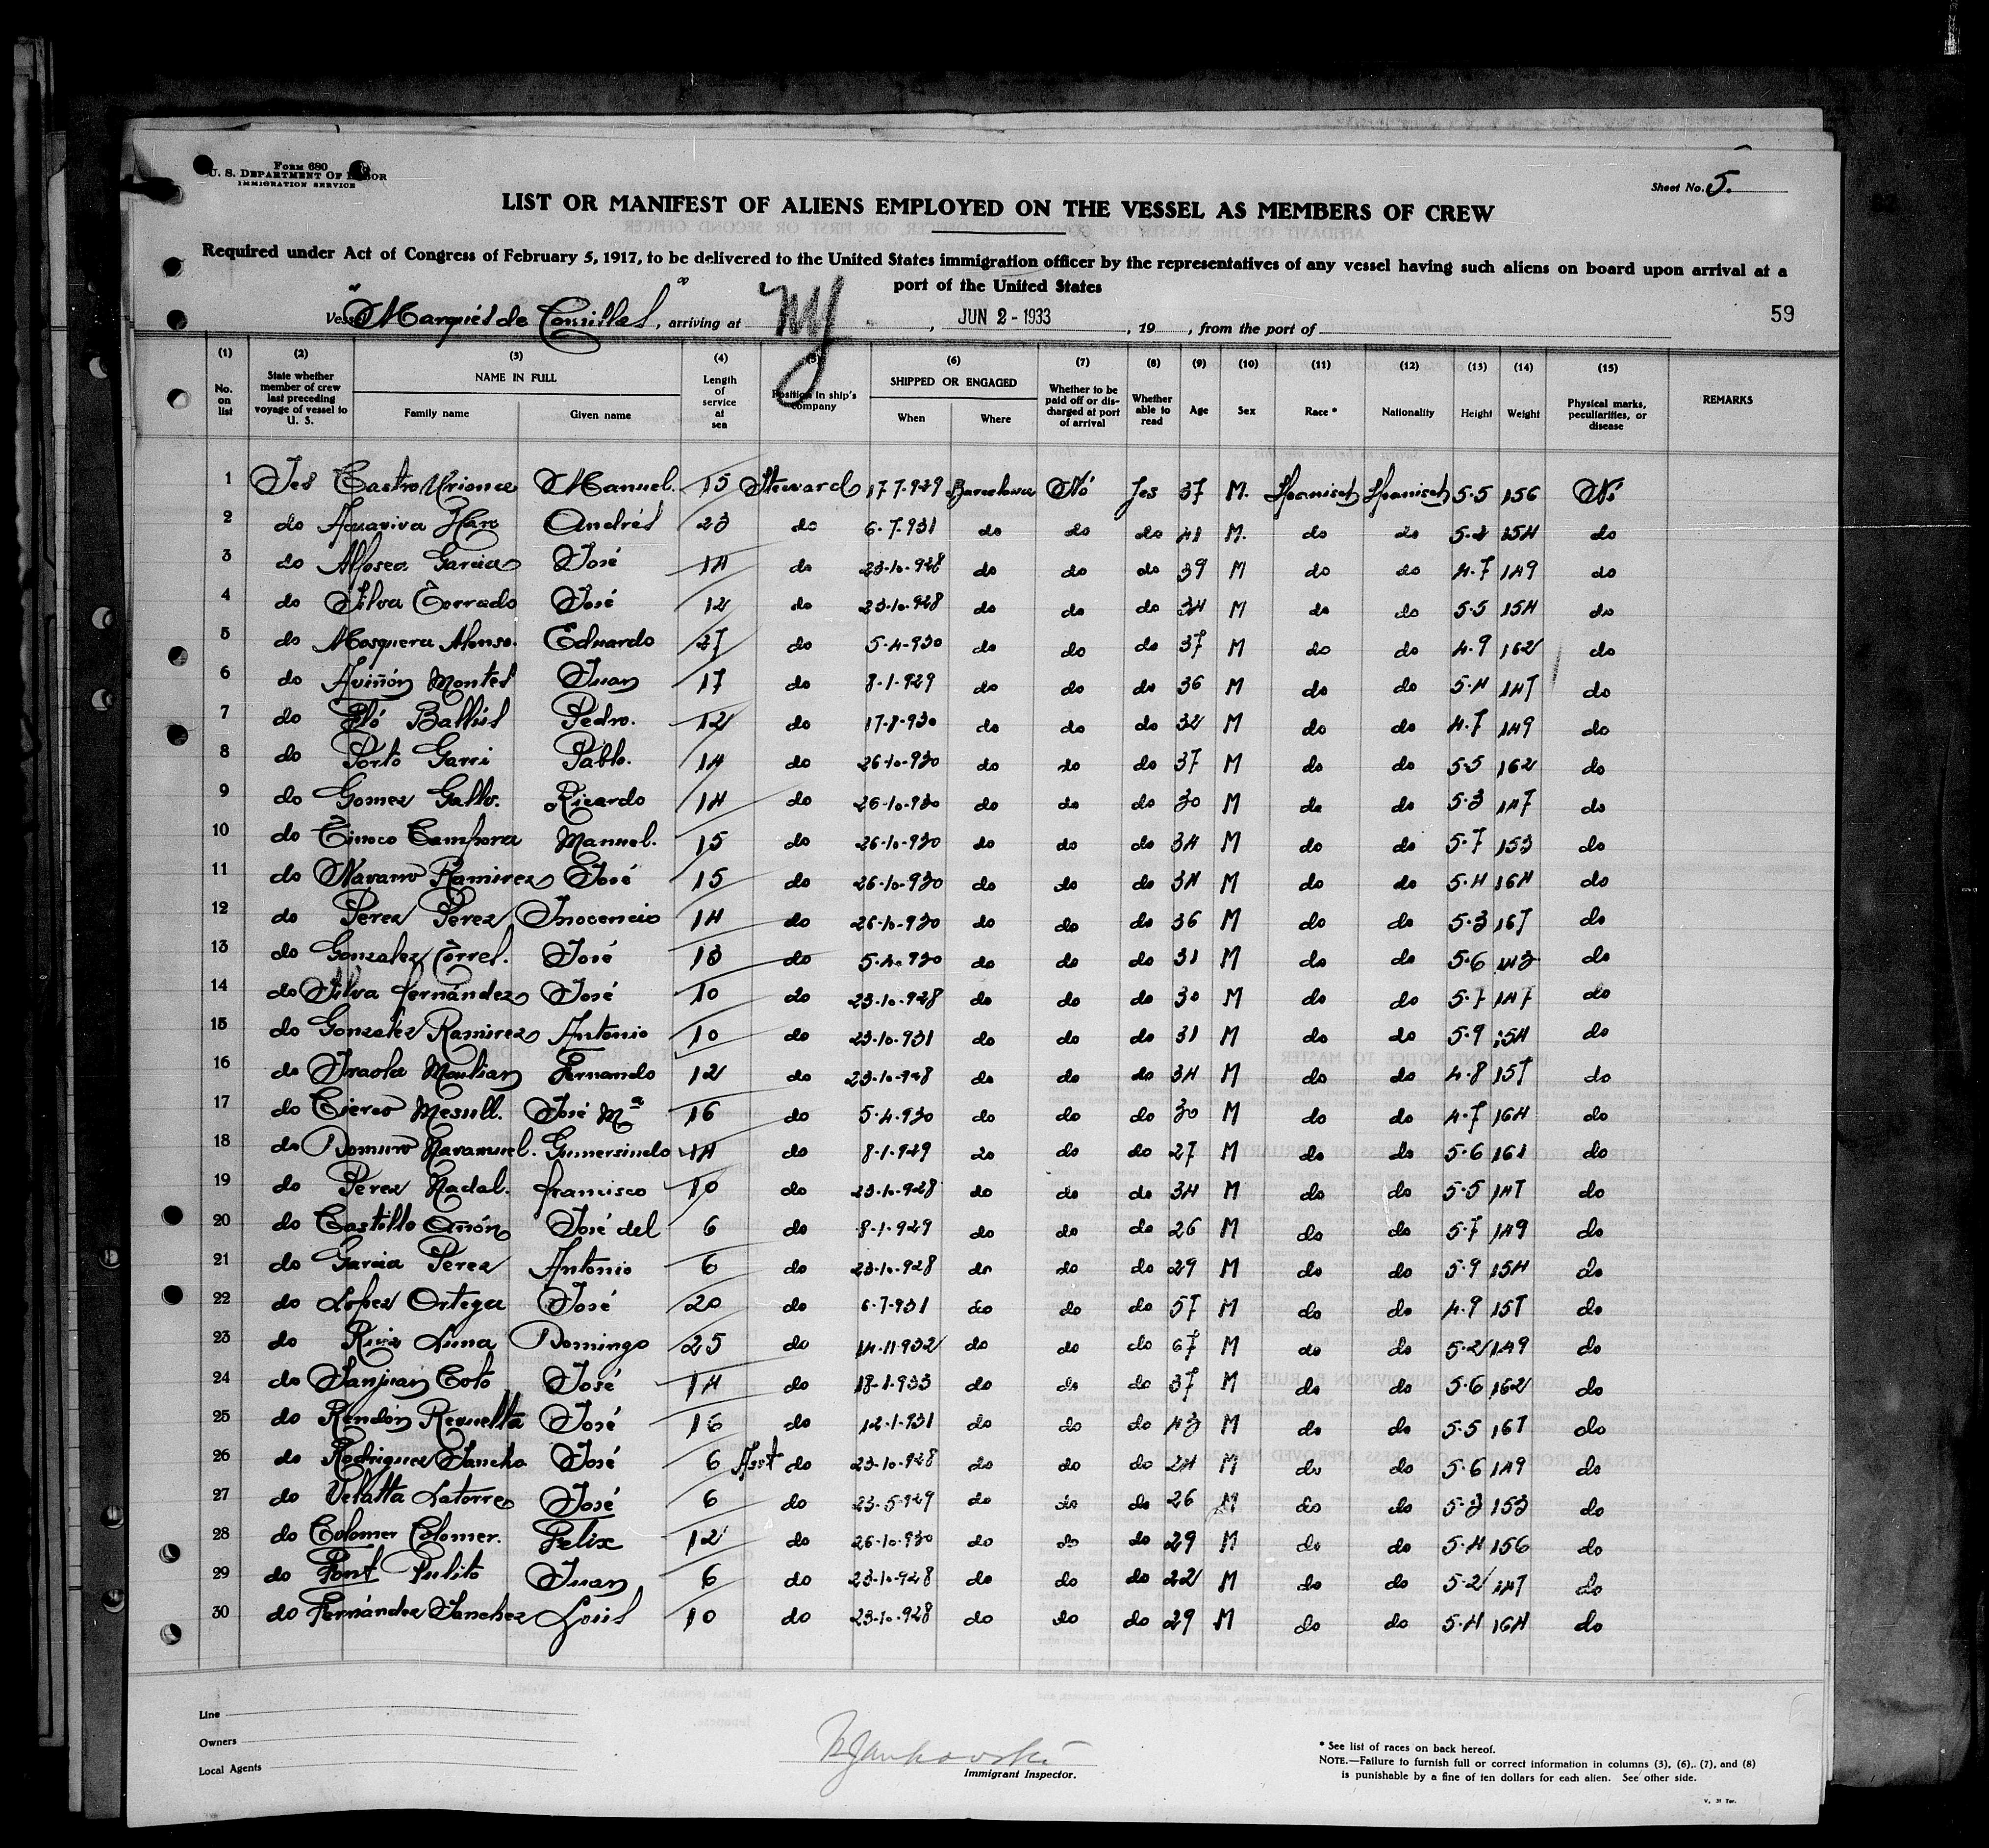 Form 680
U. S. DEPARTMENT OF LABOR
IMMIGRATION SERVICE
Sheet No. 5.
LIST OR MANIFEST OF ALIENS EMPLOYED ON THE VESSEL AS MEMBERS OF CREW
Required under Act of Congress of February 5, 1917, to be delivered to the United States immigration officer by the representatives of any vessel having such aliens on board upon arrival at a
port of the United States
Vessel "Marqués de Comillas", arriving at NY, JUN 2 - 1933, 19, from the port of
59
(1) (2) (3) (4) (5) (6) (7) (8) (9) (10) (11) (12) (13) (14) (15)
No. on list State whether member of crew last preceding voyage of vessel to U. S. NAME IN FULL Family name Given name Length of service at sea Position in ship's company SHIPPED OR ENGAGED When Where Whether to be paid off or discharged at port of arrival Whether able to read Age Sex Race * Nationality Height Weight Physical marks, peculiarities, or disease REMARKS
1 Yes Castro Manuel. 15 Steward 17-7-929 Barcelona Nó Yes 37 M. Spanisch Spanisch 5-5 156 Nó
2 do Andrés 23 do 6-7-931 do do do 41 M. do do 5-2 154 do
3 do Garcia José 14 do 23-10-928 do do do 39 M do do 4-7 149 do
4 do Silva Torrado José 12 do 23-10-928 do do do 34 M do do 5-5 154 do
5 do Mosquera Alonso. Eduardo 27 do 5-4-930 do do do 37 M do do 4-9 162 do
6 do Aviñón Montes Juan 17 do 8-1-929 do do do 36 M do do 5-4 147 do
7 do Pedro. 12 do 17-8-930 do do do 32 M do do 4-7 149 do
8 do Porto Garri Pablo. 14 do 26-10-930 do do do 37 M do do 5-5 162 do
9 do Gomez Gallo. Ricardo 14 do 26-10-930 do do do 30 M do do 5-3 147 do
10 do Tinoco Manuel. 15 do 26-10-930 do do do 34 M do do 5-7 153 do
11 do Navarro Ramirez José 15 do 26-10-930 do do do 34 M do do 5-4 164 do
12 do Perez Perez Inocencio 14 do 26-10-930 do do do 36 M do do 5-3 167 do
13 do Gonzalez Torres. José 13 do 5-4-930 do do do 31 M do do 5-6 143 do
14 do Silva fernández José 10 do 23-10-928 do do do 30 M do do 5-7 147 do
15 do Gonzalez Ramirez Antonio 10 do 23-10-931 do do do 31 M do do 5-9 154 do
16 do Iraola Moulian Fernando 12 do 23-10-928 do do do 34 M do do 4-8 157 do
17 do Cierco José Mª 16 do 5-4-930 do do do 30 M do do 4-7 164 do
18 do Gumersindo 14 do 8-1-929 do do do 27 M do do 5-6 161 do
19 do Perez Nadal. francisco 10 do 23-10-928 do do do 34 M do do 5-5 147 do
20 do Castillo Oñón José del 6 do 8-1-929 do do do 26 M do do 5-7 149 do
21 do Garcia Perez Antonio 6 do 23-10-928 do do do 29 M do do 5-9 154 do
22 do Lopez Ortega José 20 do 6-7-931 do do do 57 M do do 4-9 157 do
23 do Ruiz Luna Domingo 25 do 14-11-932 do do do 67 M do do 5-2 149 do
24 do Sanjuan Coto José 14 do 18-1-933 do do do 37 M do do 5-6 162 do
25 do Rendón Revuelta José 16 do 12-1-931 do do do 43 M do do 5-5 167 do
26 do Rodriguez Sancho José 6 Asst do 23-10-928 do do do 24 M do do 5-6 149 do
27 do Latorre José 6 do 23-5-929 do do do 26 M do do 5-3 153 do
28 do Colomer Colomer. Felix 12 do 26-10-930 do do do 29 M do do 5-4 156 do
29 do Font Pulito Juan 6 do 23-10-928 do do do 22 M do do 5-2 147 do
30 do Fernández Sanchez Louis 10 do 23-10-928 do do do 29 M do do 5-4 164 do
Line
Owners
Local Agents
Immigrant Inspector.
* See list of races on back hereof.
NOTE.—Failure to furnish full or correct information in columns (3), (6), (7), and (8)
is punishable by a fine of ten dollars for each alien. See other side.